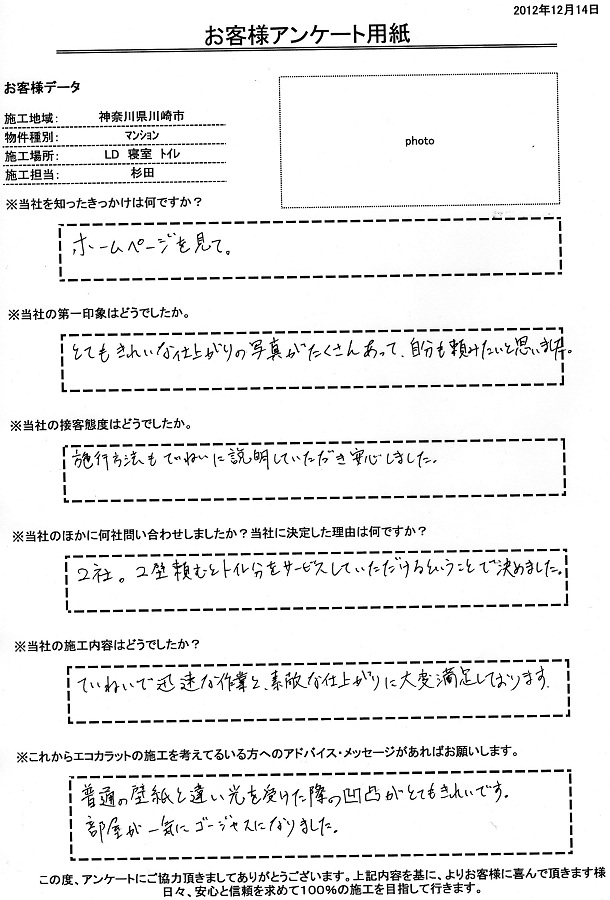 2012年12月14日
お客様アンケート用紙
お客様データ
施工地域： 神奈川県川崎市
物件種別： マンション
施工場所： LD 寝室 トイレ
施工担当： 杉田
photo
※当社を知ったきっかけは何ですか？
ホームページを見て。
※当社の第一印象はどうでしたか。
とてもきれいな仕上がりの写真がたくさんあって、自分も頼みたいと思いました。
※当社の接客態度はどうでしたか。
施行方法もていねいに説明していただき安心しました。
※当社のほかに何社問い合わせしましたか？当社に決定した理由は何ですか？
2社。2壁頼むとトイレ分をサービスしていただけるということで決めました。
※当社の施工内容はどうでしたか？
ていねいで迅速な作業と、素敵な仕上がりに大変満足しております。
※これからエコカラットの施工を考えてるいる方へのアドバイス・メッセージがあればお願いします。
普通の壁紙と違い光を受けた際の凹凸がとてもきれいです。
部屋が一気にゴージャスになりました。
この度、アンケートにご協力頂きましてありがとうございます。上記内容を基に、よりお客様に喜んで頂きます様
日々、安心と信頼を求めて100％の施工を目指して行きます。